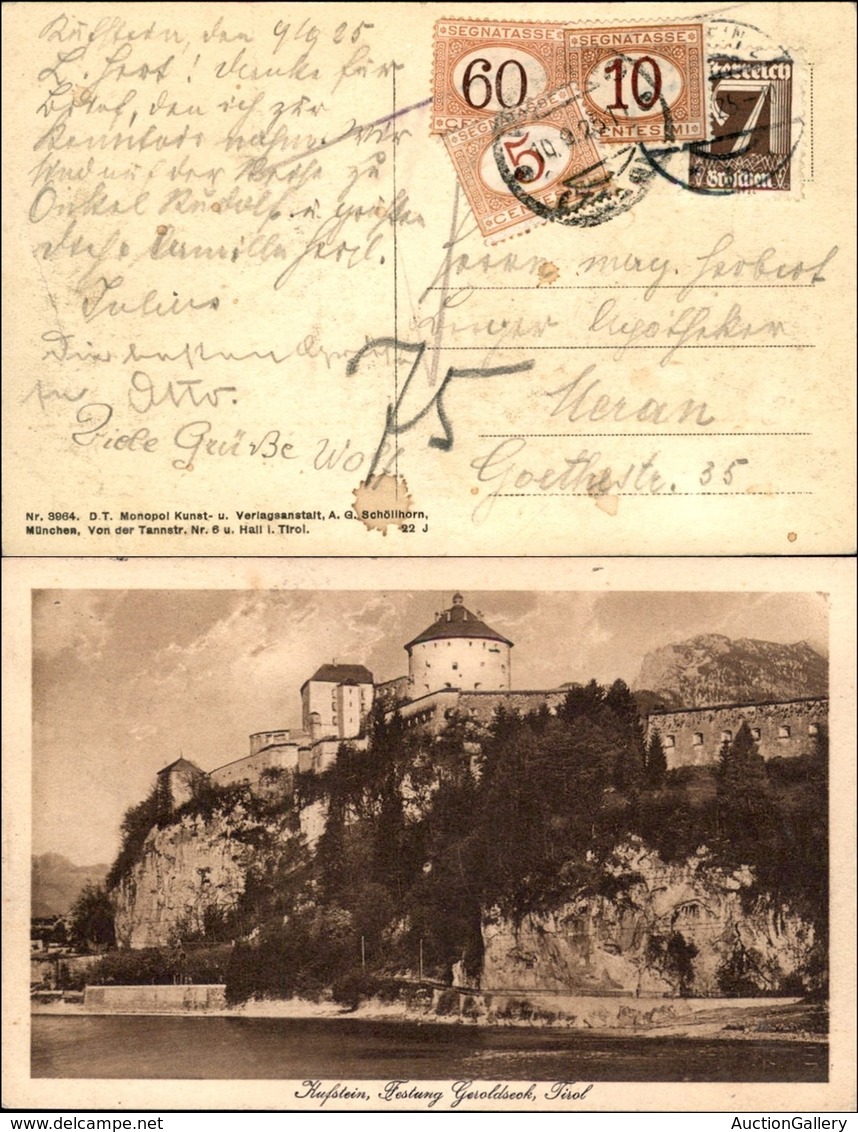 Kufstein, den 9/9 25
L. Herl! Danke für
Brief, den ich zur
Kenntnis nahm. Wir
sind auf der Reise zu
Onkel Rudolf u. grüßen
Dich Camilla Herl.
Julius
Die besten Grüße
Otto.
Viele Grüße Wolf
SEGNATASSE
60
SEGNATASSE
10
CENTESIMI
SEGNATASSE
5
10.9.25
7
Groschen
Herrn mag. Herbert
Apotheker
75
Meran
Goethestr. 35
Nr. 3964. D.T. Monopol Kunst- u. Verlagsanstalt, A. G. Schöllhorn,
München, Von der Tannstr. Nr. 6 u. Hall i. Tirol. 22 J
Kufstein, Festung Geroldseck, Tirol
AuctionGallery